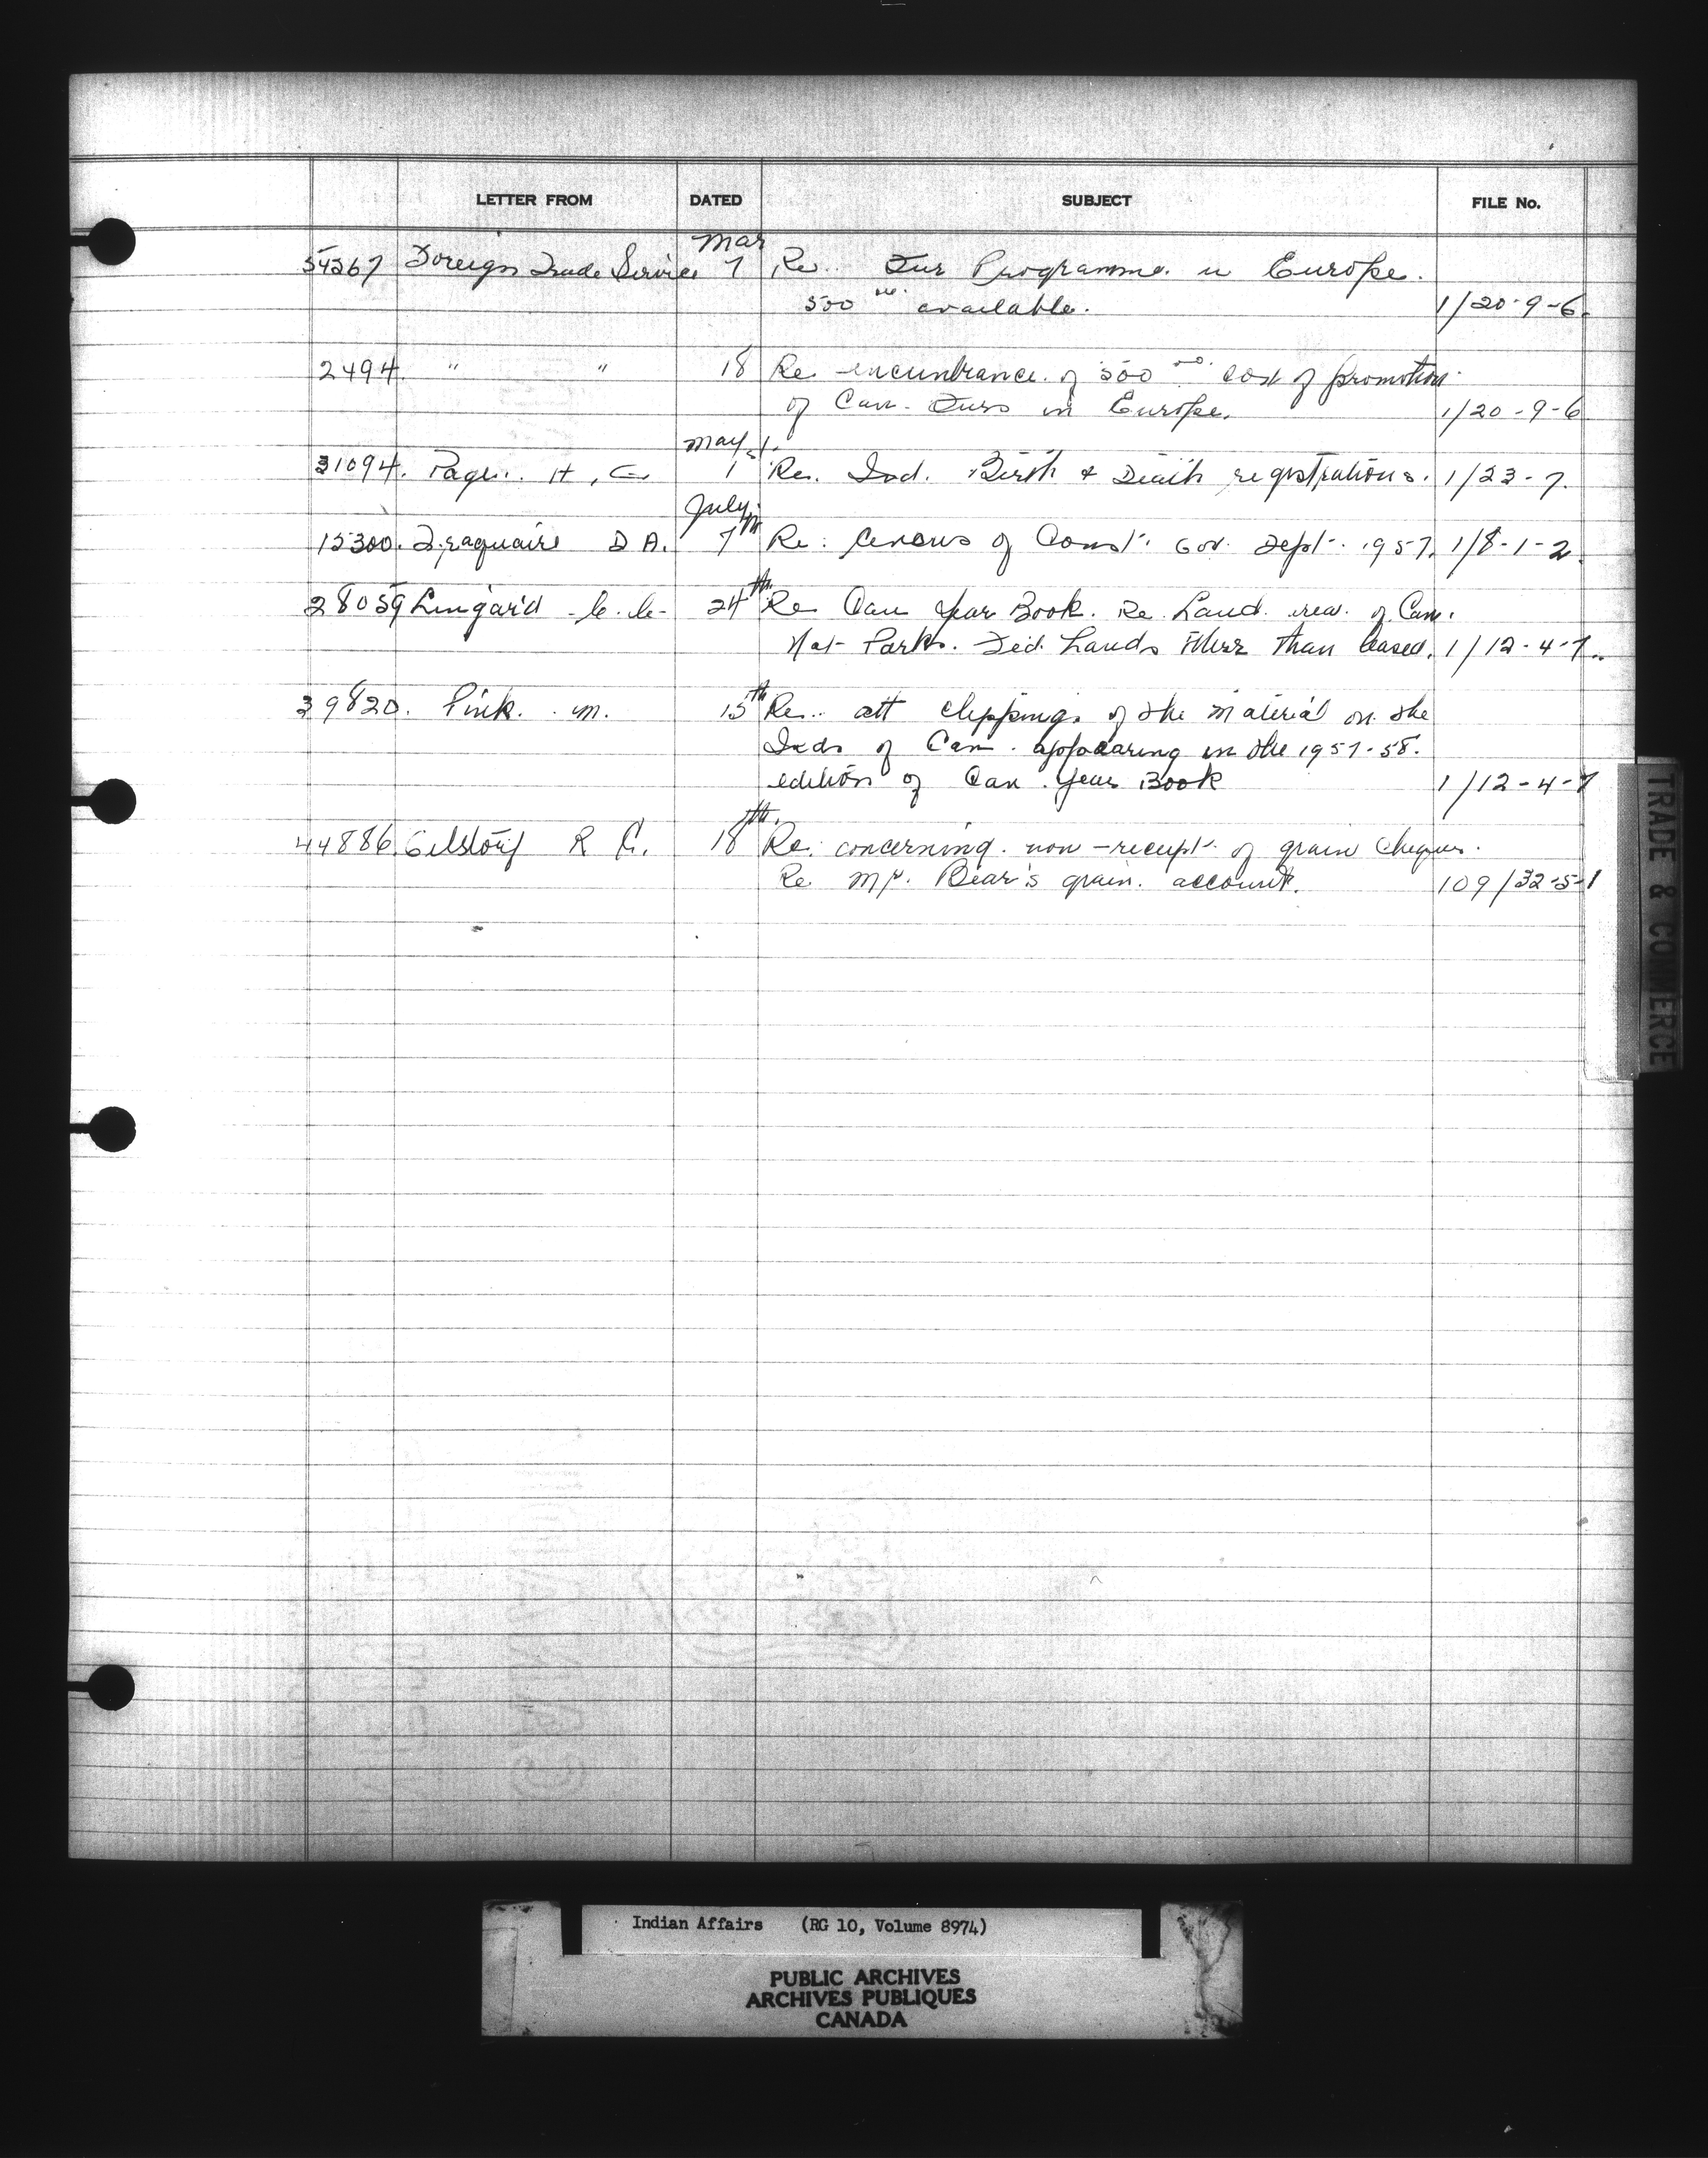 LETTER FROM DATED SUBJECT FILE No.
Mar
54267 Foreign Trade Service 7 Re. Fur Programme in Europe.
500 00 available. 1/20-9-6.
2494. " " 18 Re encumbrance of 500 00 cost of promotion
of Can. Furs in Europe. 1/20-9-6
May 1.
31094. Page. H, G 1 Re. Ind. Birth & Death registrations. 1/23-7.
July
15300. Traquair D A. 7th Re: Census of Const. Gov. Dept. 1957. 1/8-1-2.
28059 Lingard C. C. 24th Re Can Year Book. Re. Land area of Can.
Nat Parks. Fed. Lands other than leased. 1/12-4-7.
39820. Pink. M. 15th Re. att clippings of the material on the
Inds of Can. appearing in the 1957-58.
edition of Can. Year Book 1/12-4-7
44886. R G. 18th. Re: concerning non-receipt of grain cheques.
Re Mr. Bear's grain account. 109/32-5-1
TRADE & COMMERCE
Indian Affairs (RG 10, Volume 8974)
PUBLIC ARCHIVES
ARCHIVES PUBLIQUES
CANADA